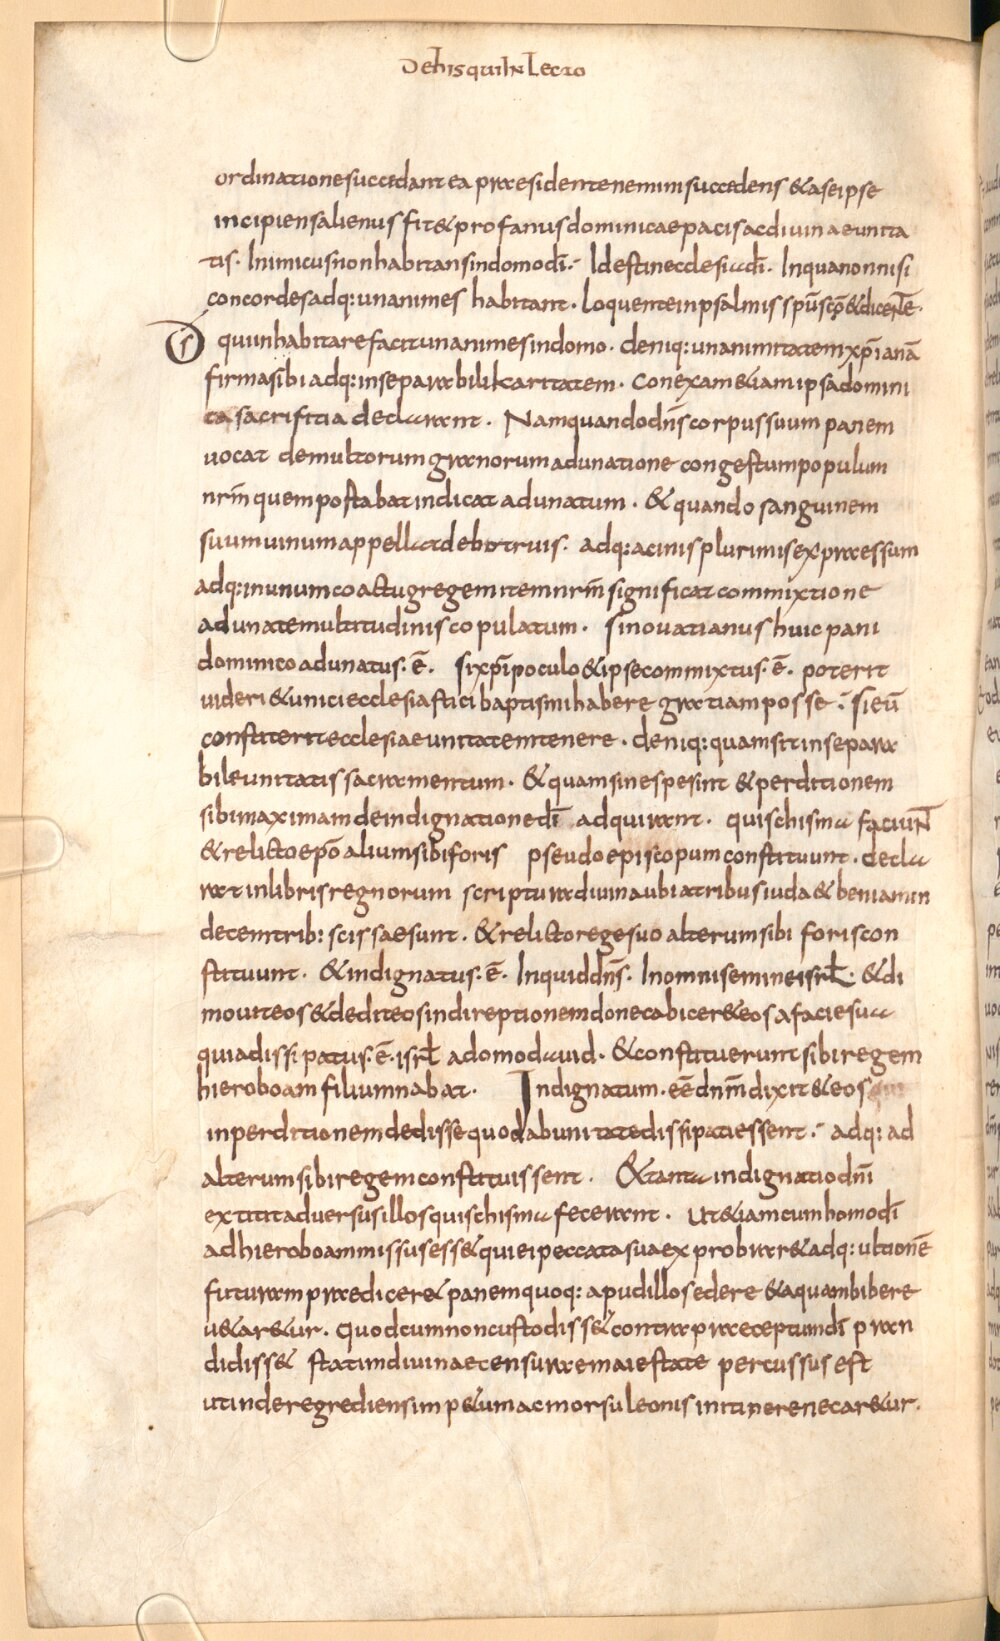 De his qui In Lecto
ordinatione succedant ea præsidente nemini succedens & a se ipse
incipiens alienus fit & profanus dominicae pacis ac divinae unita
tis. Inimicus non habitans in domo dī. Id est in ecclesia dī. In qua non nisi
concordes adq: unanimes habitant. loquente in psalmis spū scō & dicente.
Ds qui inhabitare facit unanimes in domo. deniq: unanimitatem xp̄ianā
firma sibi adq: inseparabili karitatem. conexam &iam ipsa domini
ca sacrificia declarant. Nam quando dn̄s corpus suum panem
vocat de multorum granorum adunatione congestum populum
nrm̄ quem postabat indicat adunatum. & quando sanguinem
suum vinum appellat de botruis. adq: acinis plurimis expræssum
adq: in unum coactu gregem item nrm̄ significat commixtione
adunate multitudinis copulatum. si novatianus huic pani
dominico adunatus. ē. si xp̄i poculo & ipse commixtus. ē. poterit
videri & unici ecclesiastici baptismi habere gratiam posse. si eū
constiterit ecclesiae unitatem tenere. deniq: quam sit insepara
bile unitatis sacramentum. & quam sine spe sint & perditionem
sibi maximam de indignatione dī adquirant. qui schisma faciunt
& relicto ep̄o alium sibi foris pseudoepiscopum constituunt. decla
rat in libris regnorum scriptura divina ubi a tribus iuda & beniamin
decem trib: scissae sunt. & relicto rege suo alterum sibi foris con
stituunt. & indignatus. ē. Inquid dn̄s. In omni semine isrl̄. & di
movit eos & dedit eos in direptionem donec abicer& eos a facie sua
quia dissipatus. ē. isrl̄ a domo david. & constituerunt sibi regem
hieroboam filium nabat. Indignatum. eē dnm̄ dixit & eos
in perditionem dedisse quod ab unitate dissipati essent. adq: ad
alterum sibi regem constituissent. & tanta indignatio dn̄i
extitit adversus illos qui schisma fecerant. ut &iam cum homo dī
ad hieroboam missus ess& qui ei peccata sua exprobrar& adq: ultionē
futuram prædicer& panem quoq: apud illos edere & aquam bibere
u&ar&ur. quod cum non custodiss& contra præceptum dī pran
diss& statim divinae censuræ maiestate percussus est
ut inde regrediens imp&u mac morsu leonis in itinere necar&ur.